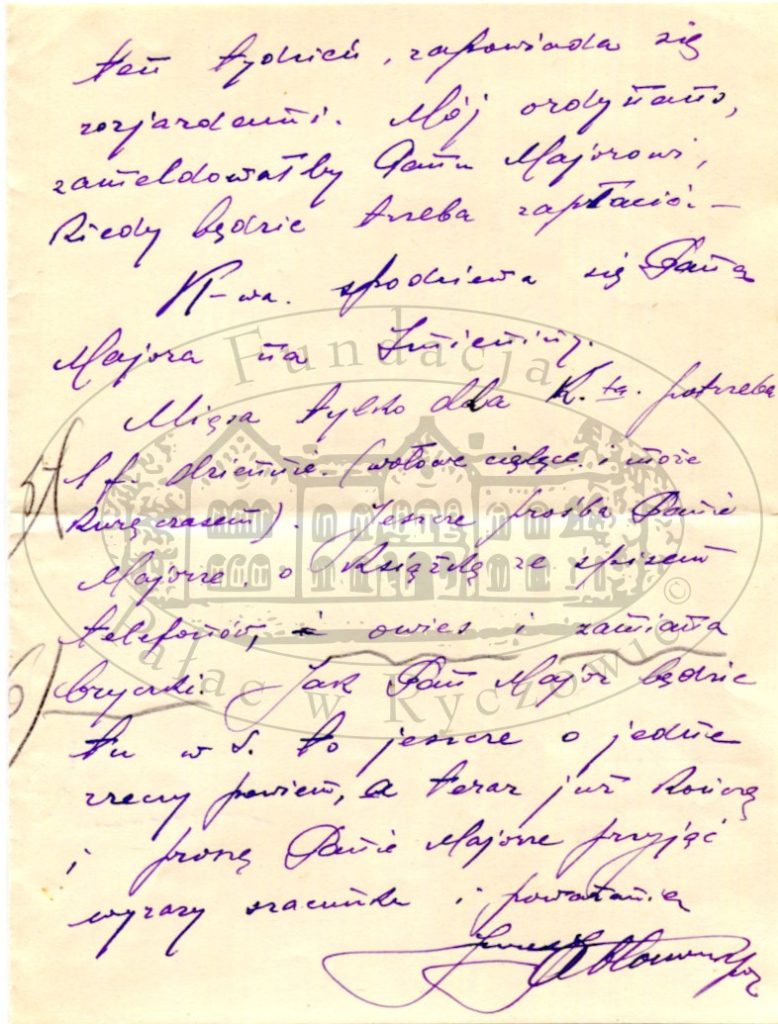 ten tydzień, zapowiada się
rozjazdami. Mój ordynans,
zameldowałby Panu Majorowi,
kiedy będzie trzeba zapłacić. –
K-wa. spodziewa się Pana
Majora na Imieniny.
Mięsa tylko dla K. ta. potrzeba
5/ 1 f. dziennie. (wołowe cielęce i może
kurę czasem). Jeszcze prośba Panie
Majorze, o książkę ze spisem
telefonów, i owies i zamiana
6) bryczki. Jak Pan Major będzie
tu w S. to jeszcze o jedne
rzeczy powiem, a teraz już kończę
i proszę Panie Majorze przyjąć
wyrazy szacunku i poważania
Fundacja
Pałac w Ryczowie ©